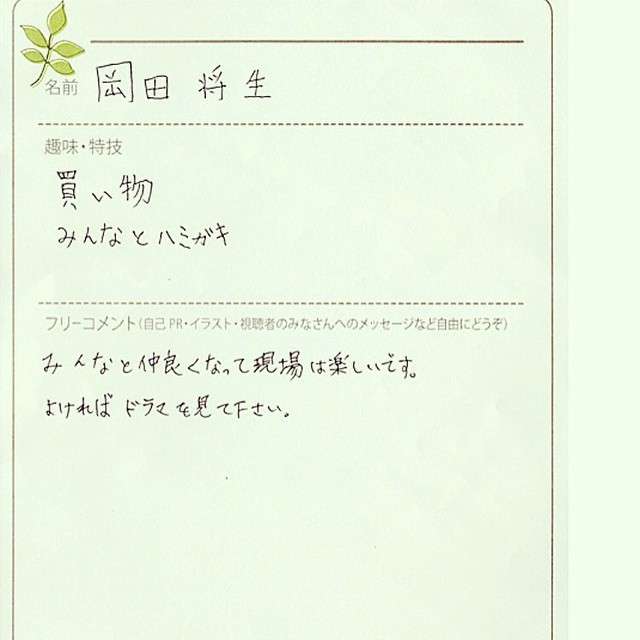 名前 岡田 将生
趣味・特技
買い物
みんなとハミガキ
フリーコメント（自己PR・イラスト・視聴者のみなさんへのメッセージなど自由にどうぞ）
みんなと仲良くなって現場は楽しいです。
よければドラマを見て下さい。